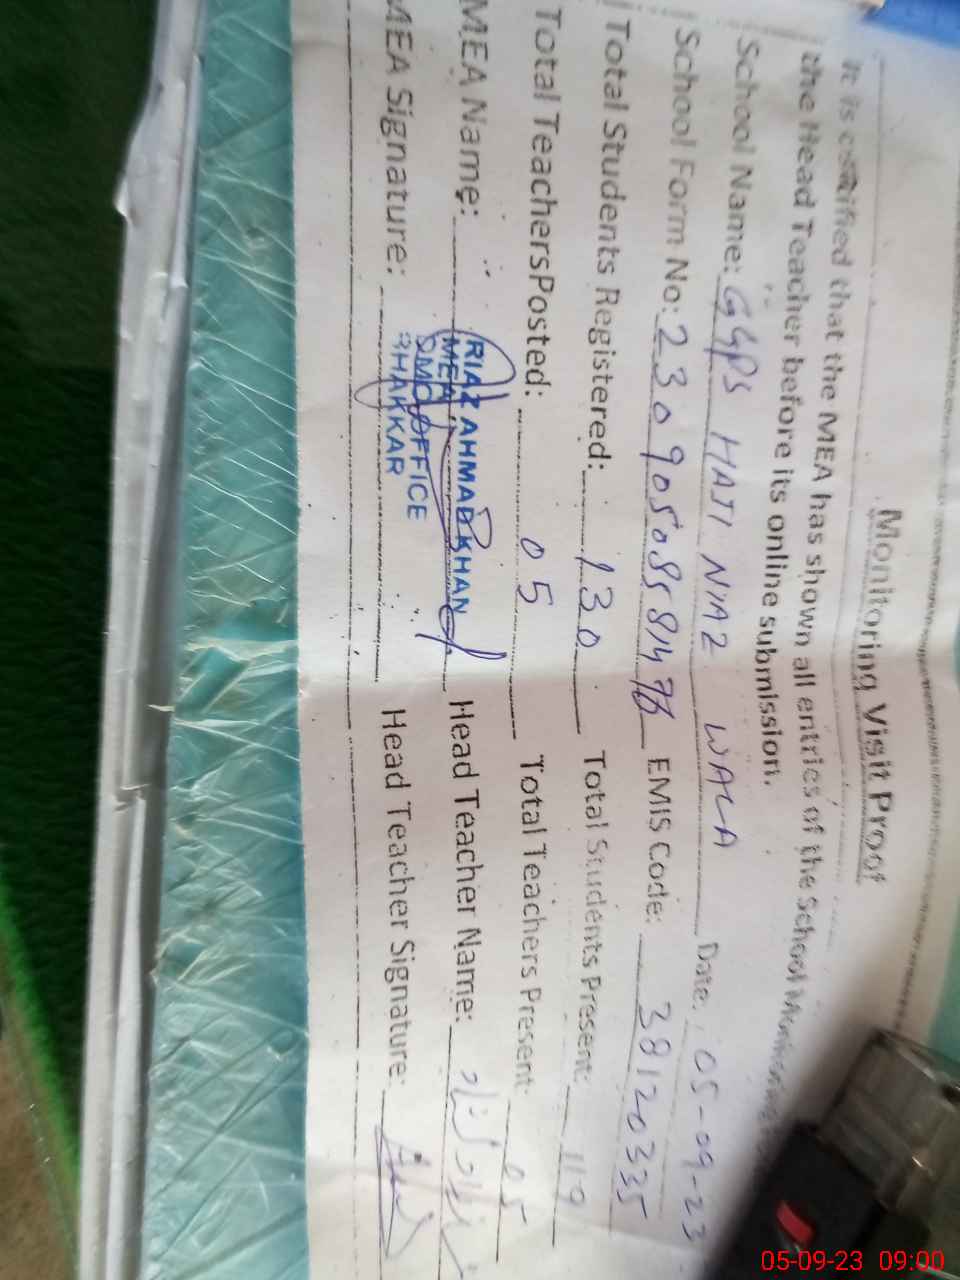 Monitoring Visit Proof
It is certified that the MEA has shown all entries of the School Monitoring
the Head Teacher before its online submission.
School Name: GGPS HAJI NIAZ WALA Date: 05-09-23
School Form No: EMIS Code: 38120335
Total Students Registered: 130 Total Students Present: 119
Total TeachersPosted: 05 Total Teachers Present: 05
MEA Name: RIAZ AHMAD KHAN Head Teacher Name:
MEA
MEA Signature: DMO OFFICE Head Teacher Signature:
BHAKKAR
05-09-23 09:00